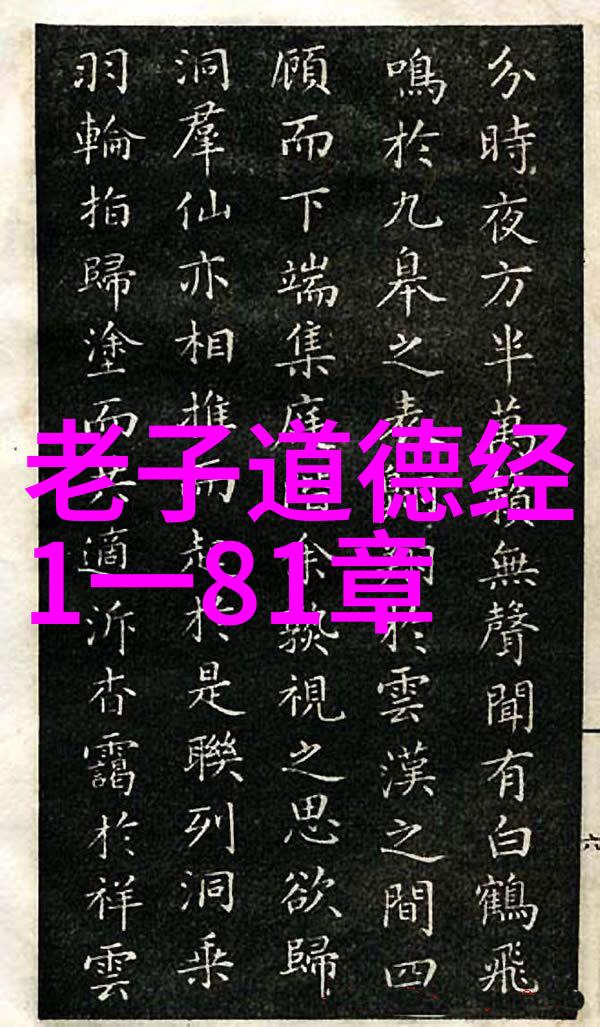 分時夜方半萬籟無聲聞有白鶴飛
鳴於九皋之表翔於雲漢之間四
顧而下端集庭余孰視之思欲歸
洞羣仙亦相推而起於是聯列洞乘
羽輪指歸塗而共適泝杳靄於祥雲
老子道德经
1一81章
六